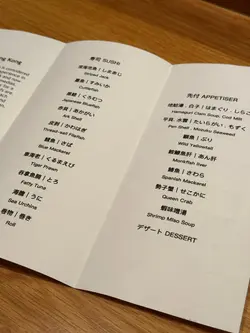 ng Kong
寿司 SUSHI
しまあじ
Striped Jack
墨魚 | すみいか
Cuttlefish
くろむつ
Japanese Bluefish
赤貝 | あかがい
Ark Shell
皮剥 | かわはぎ
Thread-sail Filefish
鯖魚 | さば
Blue Mackerel
車海老 | くるまえび
Tiger Prawn
とろ
Fatty Tuna
海膽 | うに
Sea Urchins
卷物 | 巻き
Roll
先付 APPETISER
はまぐり・しらこ
Hamaguri Clam Soup, Cod Milt
たいらがい・もずく
Pen Shell, Mozuku Seaweed
鰤魚 | ぶり
Wild Yellowtail
鮟鱇魚肝 | あん肝
Monkfish liver
鰆魚 | さわら
Spanish Mackerel
勢子蟹 | せこかに
Queen Crab
蝦味噌湯
Shrimp Miso Soup
デザート DESSERT